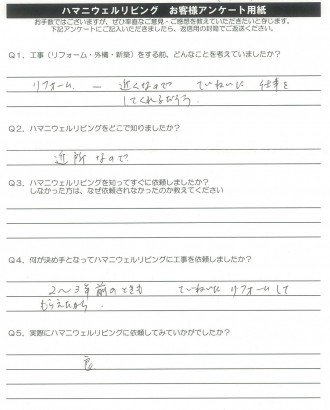 ハマニウェルリビング　お客様アンケート用紙
お手数ではございますが、ぜひ率直なご意見・ご感想を教えていただきたいと存じます。
下記アンケートにご記入いただきましたら、返信用の封筒でご返送ください。
Q1．工事（リフォーム・外構・新築）をする前、どんなことを考えていましたか？
リフォーム － 近くなので ていねいに 仕事を
してくれるだろう．
Q2．ハマニウェルリビングをどこで知りましたか？
近所なので
Q3．ハマニウェルリビングを知ってすぐに依頼しましたか？
しなかった方は、なぜ依頼されなかったのか教えてください
Q4．何が決め手となってハマニウェルリビングに工事を依頼しましたか？
2～3年前のときも ていねいに リフォームして
もらえたから．
Q5．実際にハマニウェルリビングに依頼してみていかがでしたか？
良